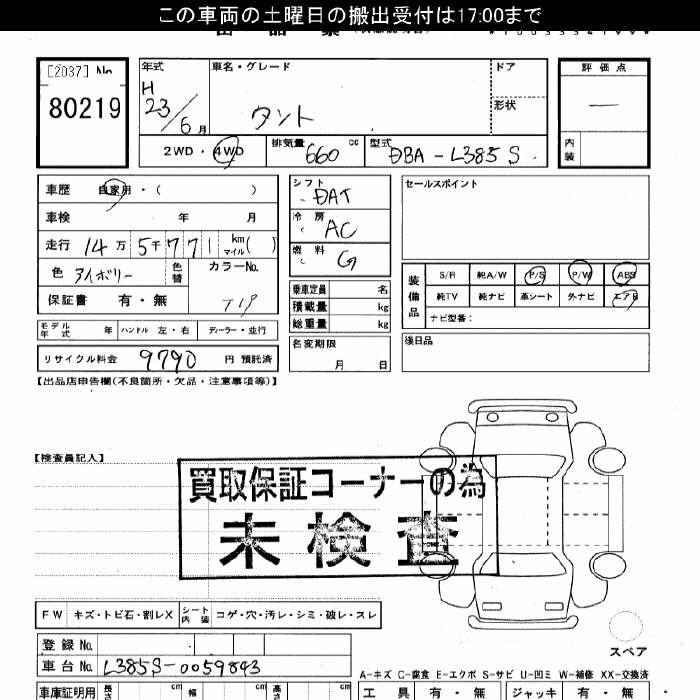 この車両の土曜日の搬出受付は17:00まで
[2037] No
80219
年式 車名・グレード ドア 評価点
H 23/6月 タント 形状 ―
2WD・4WD 排気量 660 cc 型式 DBA-L385S 内装
車歴 自家用・( )
車検 年 月
走行 14万5千771 km マイル( )
色 アイボリー 色替 カラーNo. T19
保証書 有・無
シフト DAT
冷房 AC
燃料 G
乗車定員 名
積載量 kg
総重量 kg
名変期限
月 日
セールスポイント
装備品 S/R 純A/W P/S P/W ABS
純TV 純ナビ 革シート 外ナビ エアB
ナビ型番:
後日品
モデル年式 年 ハンドル 左・右 ディーラー・並行
リサイクル料金 9790 円 預託済
【出品店申告欄(不良箇所・欠品・注意事項等)】
【検査員記入】
買取保証コーナーの為
未検査
FW キズ・トビ石・割レX シート内装 コゲ・穴・汚レ・シミ・破レ・スレ
スペア
登録No.
車台No. L385S-0059843
A-キズ C-腐食 E-エクボ S-サビ U-凹ミ W-補修 XX-交換済
車庫証明用 長さ cm 幅 cm 高さ cm 工具 有・無 ジャッキ 有・無